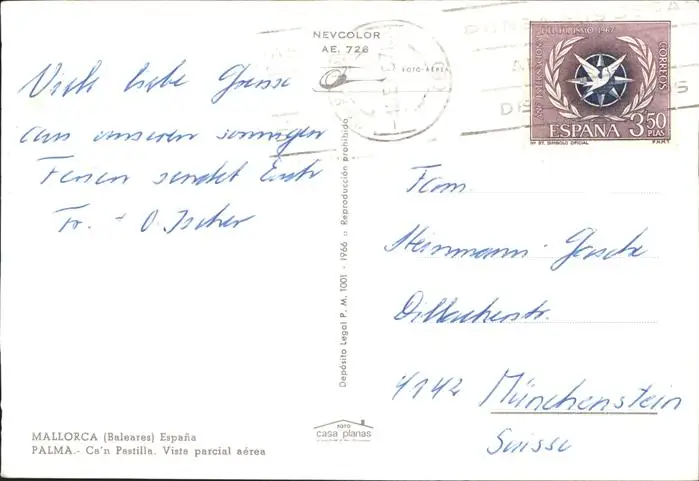 NEVCOLOR
AE. 726
FOTO-AEREA
AÑO INTERNACIONAL DEL TURISMO 1967
CORREOS
ESPAÑA 3,50 PTAS
Nº 57. SIMBOLO OFICIAL F.N.M.T.
Viele liebe Grüsse
aus unseren sonnigen
Ferien sendet Euch
Fr. + O. Ischer
Fam.
Steinmann
4142 Münchenstein
Suisse
Depósito Legal P. M. 1001 - 1966 :: Reproducción prohibida
FOTO
casa planas
MALLORCA (Baleares) España
PALMA.- Ca'n Pastilla. Vista parcial aérea